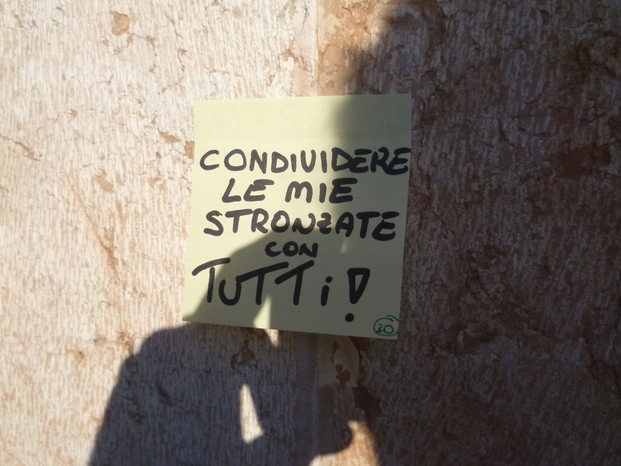 CONDIVIDERE
LE MIE
STRONZATE
CON
TUTTi!
30